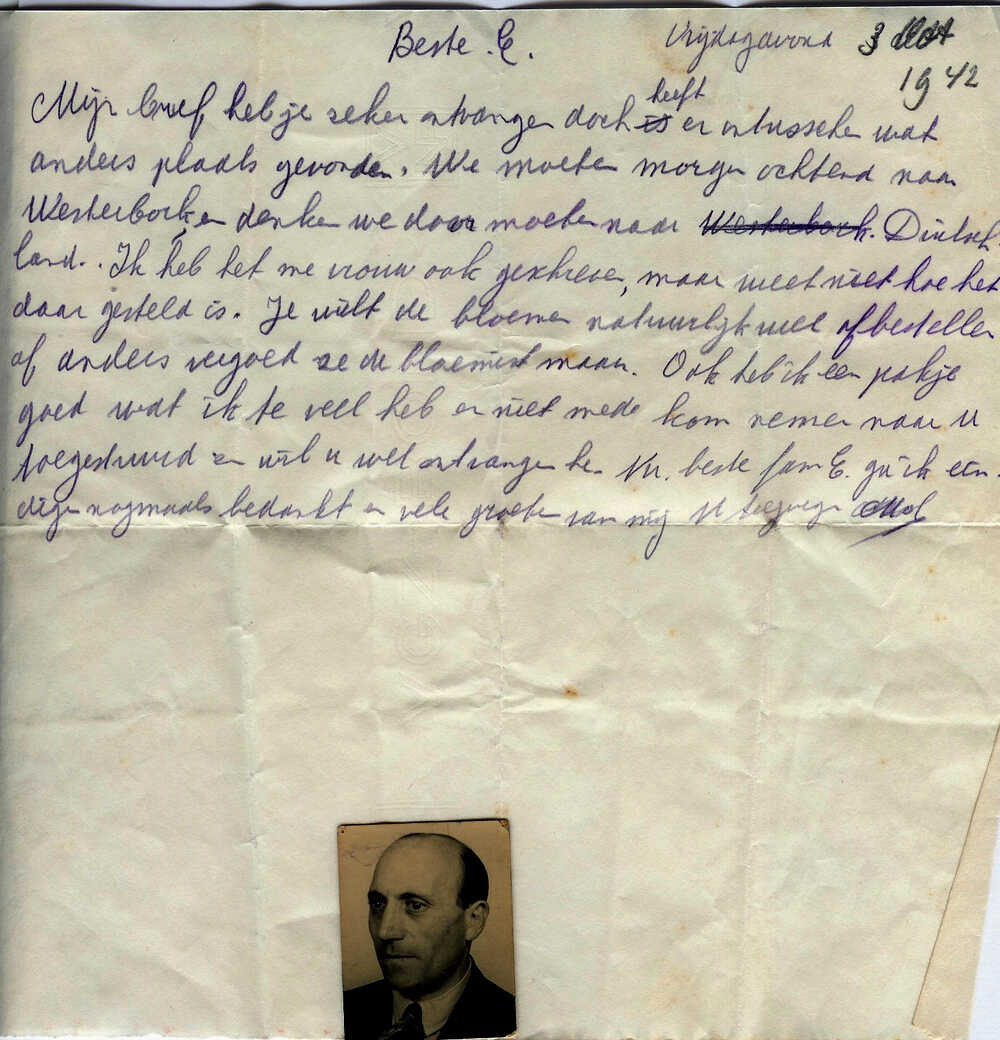 Beste .E. Vrijdagavond 3 Okt
1942
Mijn brief heb je zeker ontvangen doch is heeft er intusschen wat
anders plaats gevonden. We moeten morgen ochtend naar
Westerbork en denken we door moeten naar Westerbork. Duitsch
land.. Ik heb het me vrouw ook geschreven, maar weet niet hoe het
daar gesteld is. Je wilt de bloemen natuurlijk wel afbestellen
of anders vergoed ze de bloemist maar. Ook heb ik een pakje
goed wat ik te veel heb en niet mede kon nemen naar U
toegestuurd en wil u wel ontvangen hen. Nu. beste fam E. ga ik ein
digen nogmaals bedankt en vele groeten van mij U toegnegen